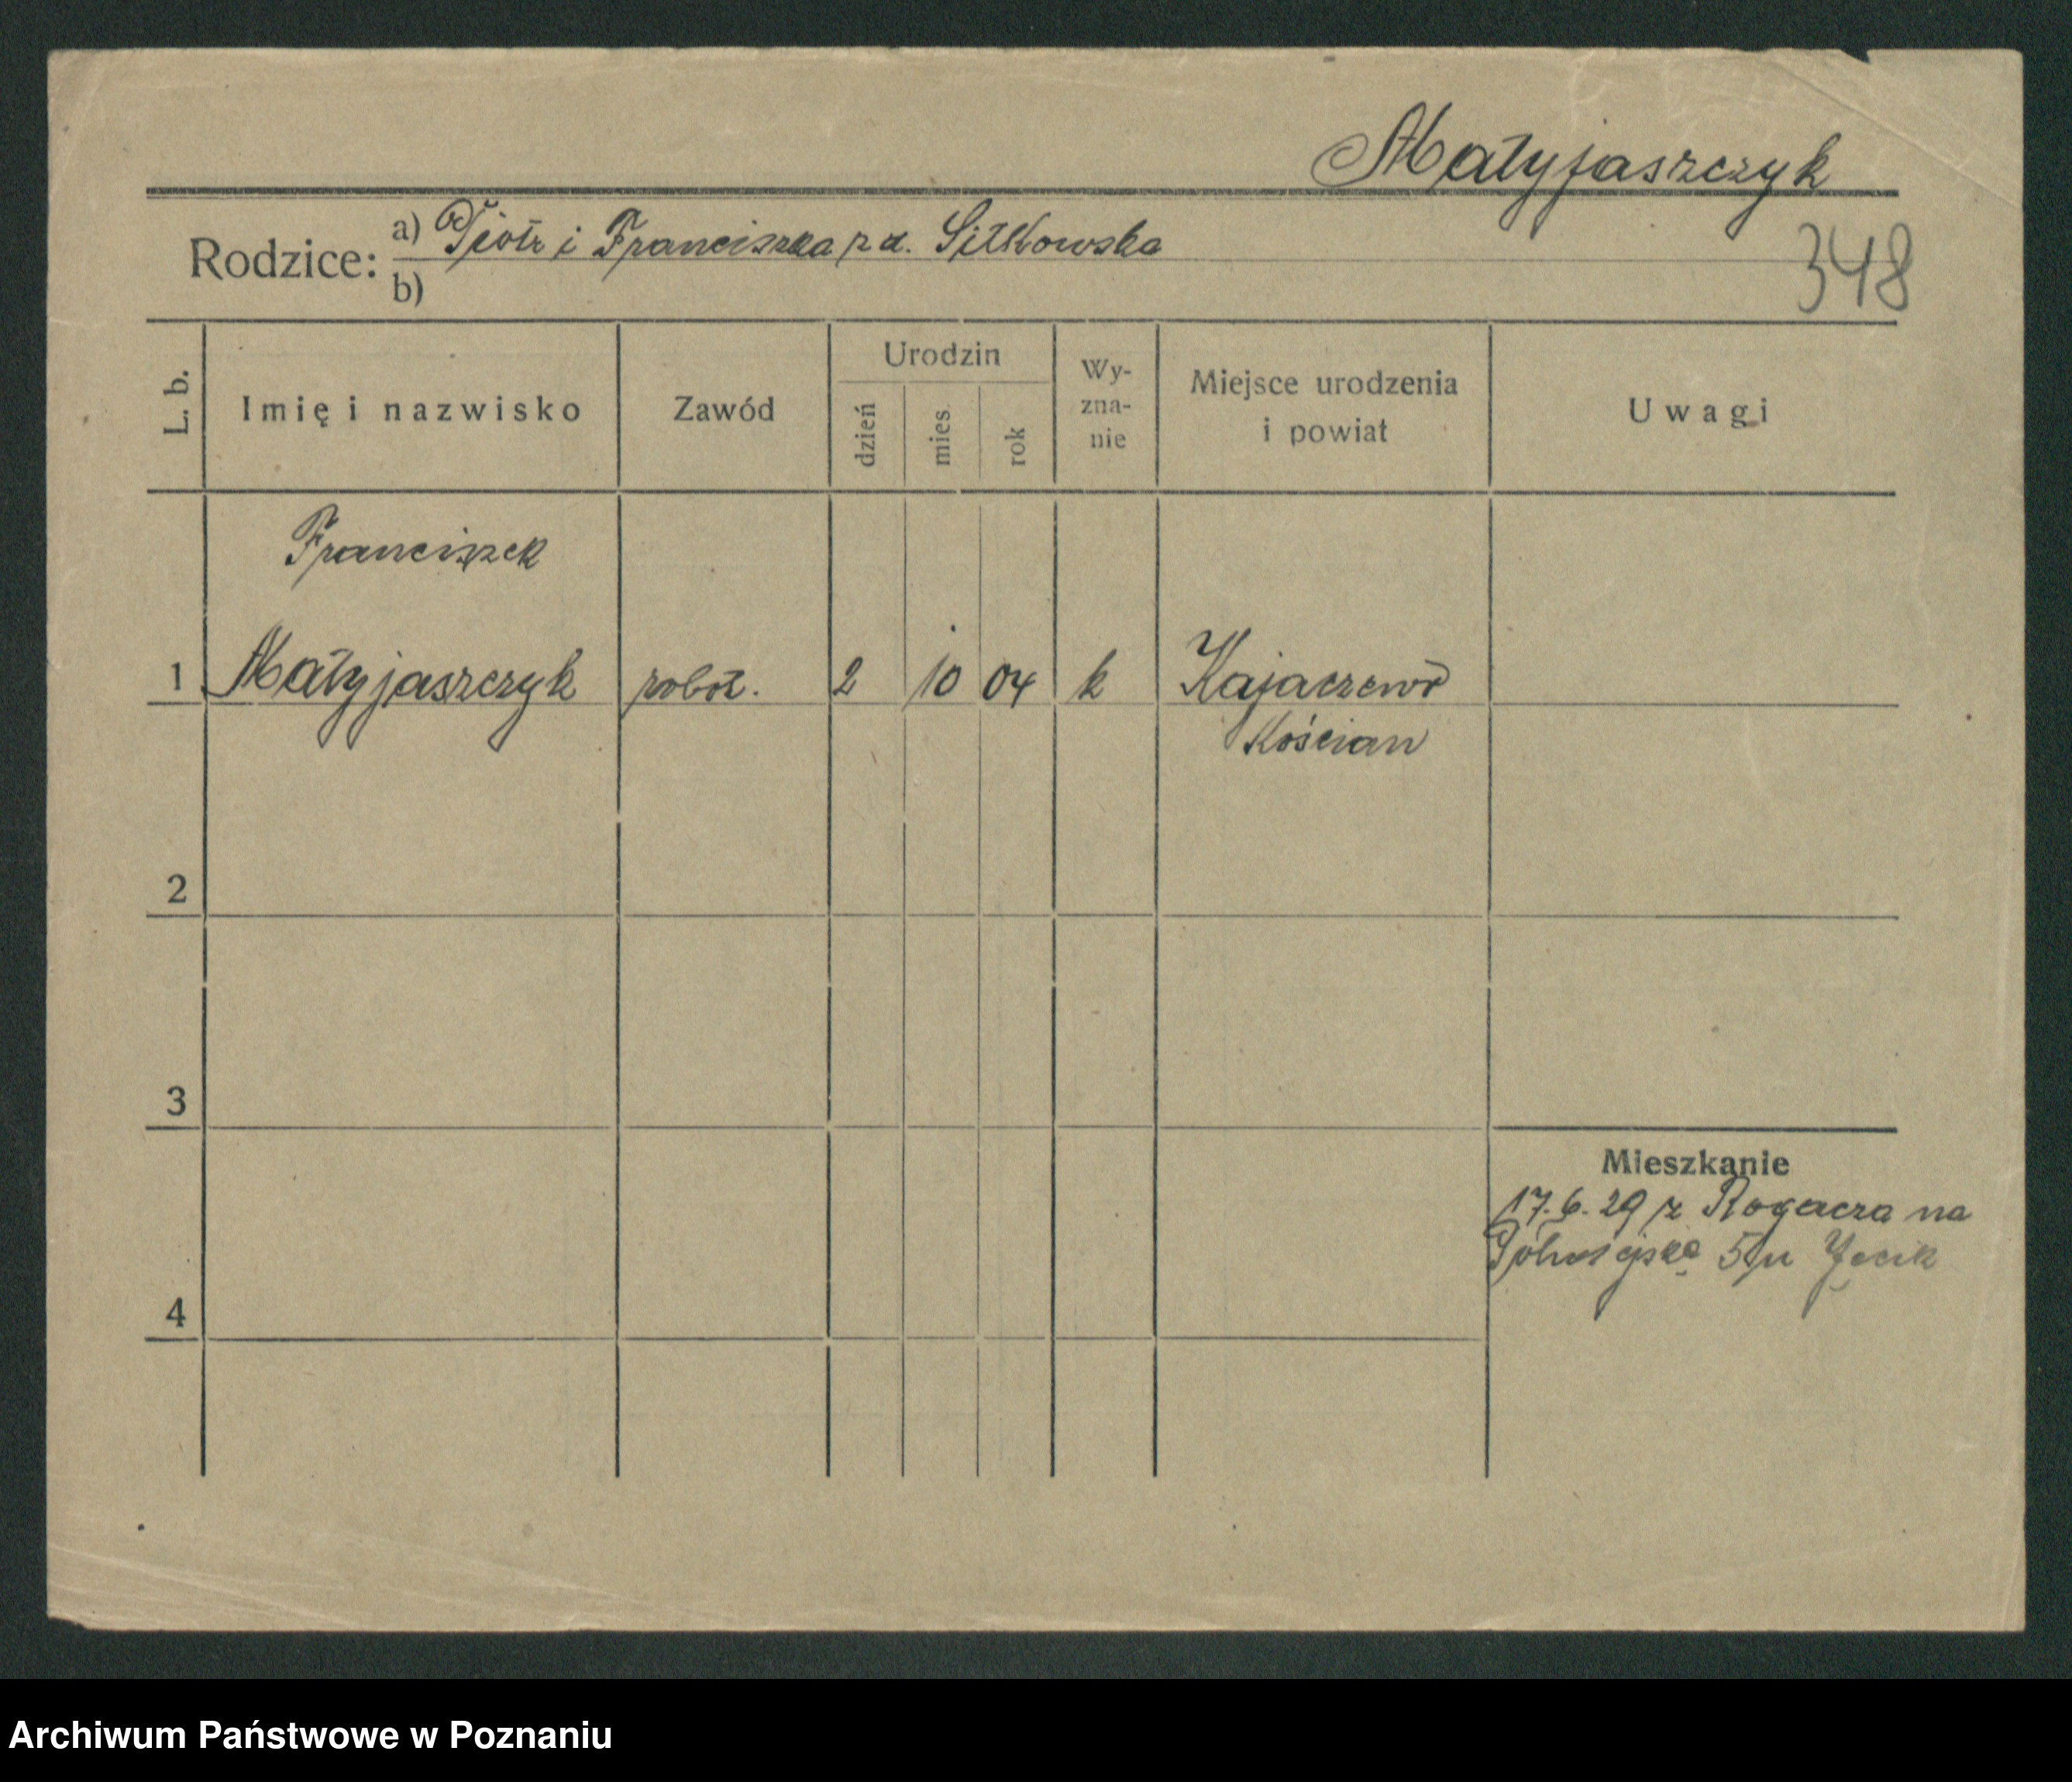 Matyjaszczyk
Rodzice: a) Piotr i Franciszka z d. Sitkowska
b)
348
L. b. Imię i nazwisko Zawód Urodzin dzień mies. rok Wy-zna-nie Miejsce urodzenia i powiat Uwagi
Franciszek
1 Matyjaszczyk robot. 2 10 04 k
Kościan
2
3
Mieszkanie
17. 6. 29 z Rogacza na
5 u
4
Archiwum Państwowe w Poznaniu